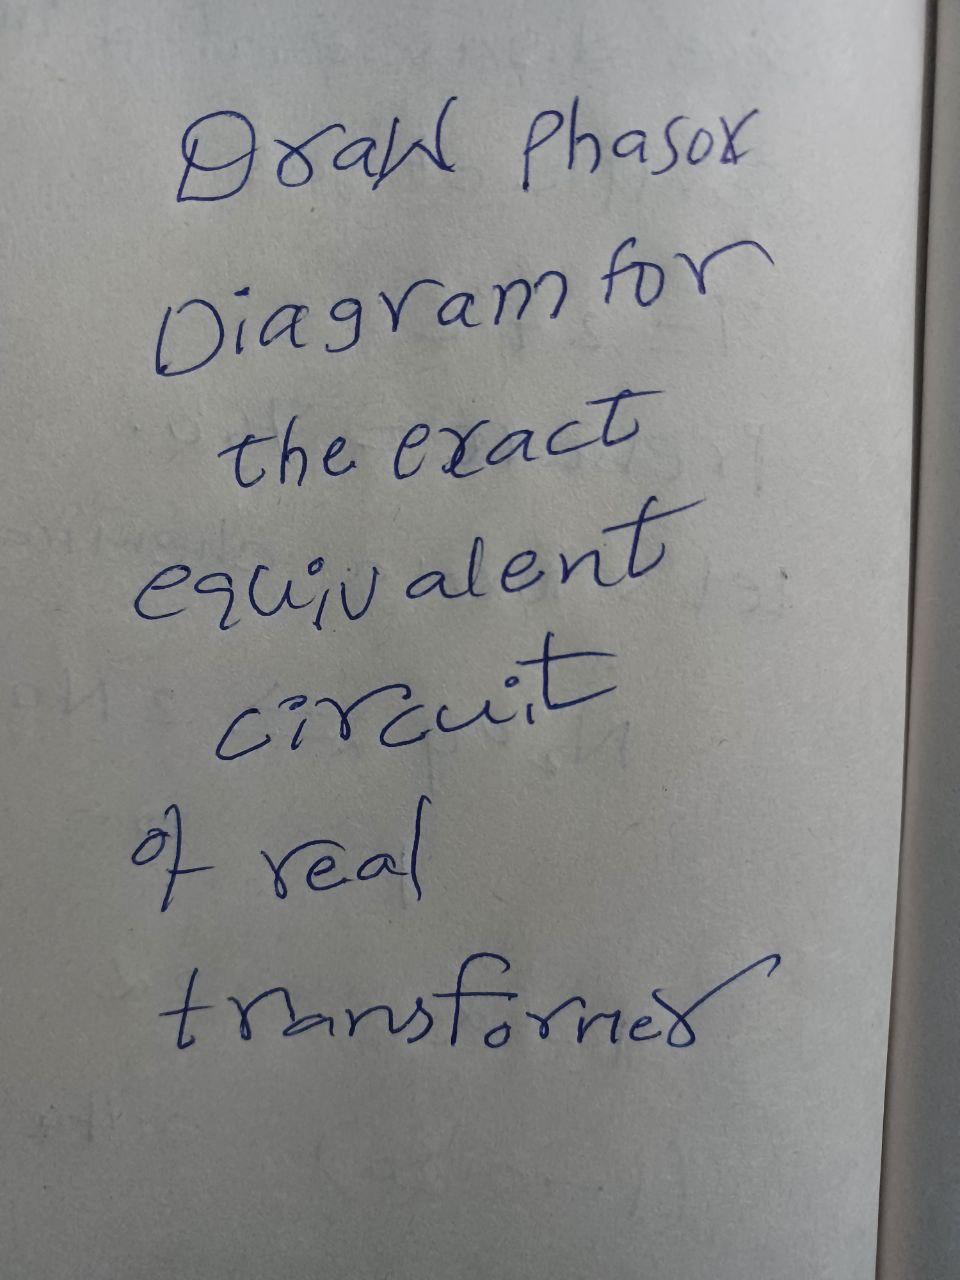 Draw Phasor
Diagram for
the exact
equivalent
circuit
of real
transformer